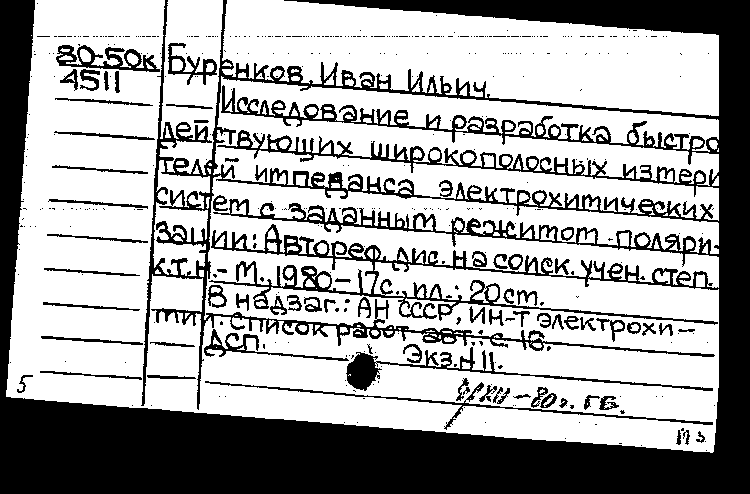 80-50к Буренков, Иван Ильич.
4511
Исследование и разработка быстро
действующих широкополосных измери
телей импеданса электрохимических
систем с заданным режимом поляри-
зации: Автореф. дис. на соиск. учен. степ.
к.т.н.- М., 1980.- 17с., ил.; 20см.
В надзаг.: АН СССР, ин-т электрохи-
мии. Список работ авт.: с. 16.
ДСП. Экз.н 11.
-80г. ГБ.
5